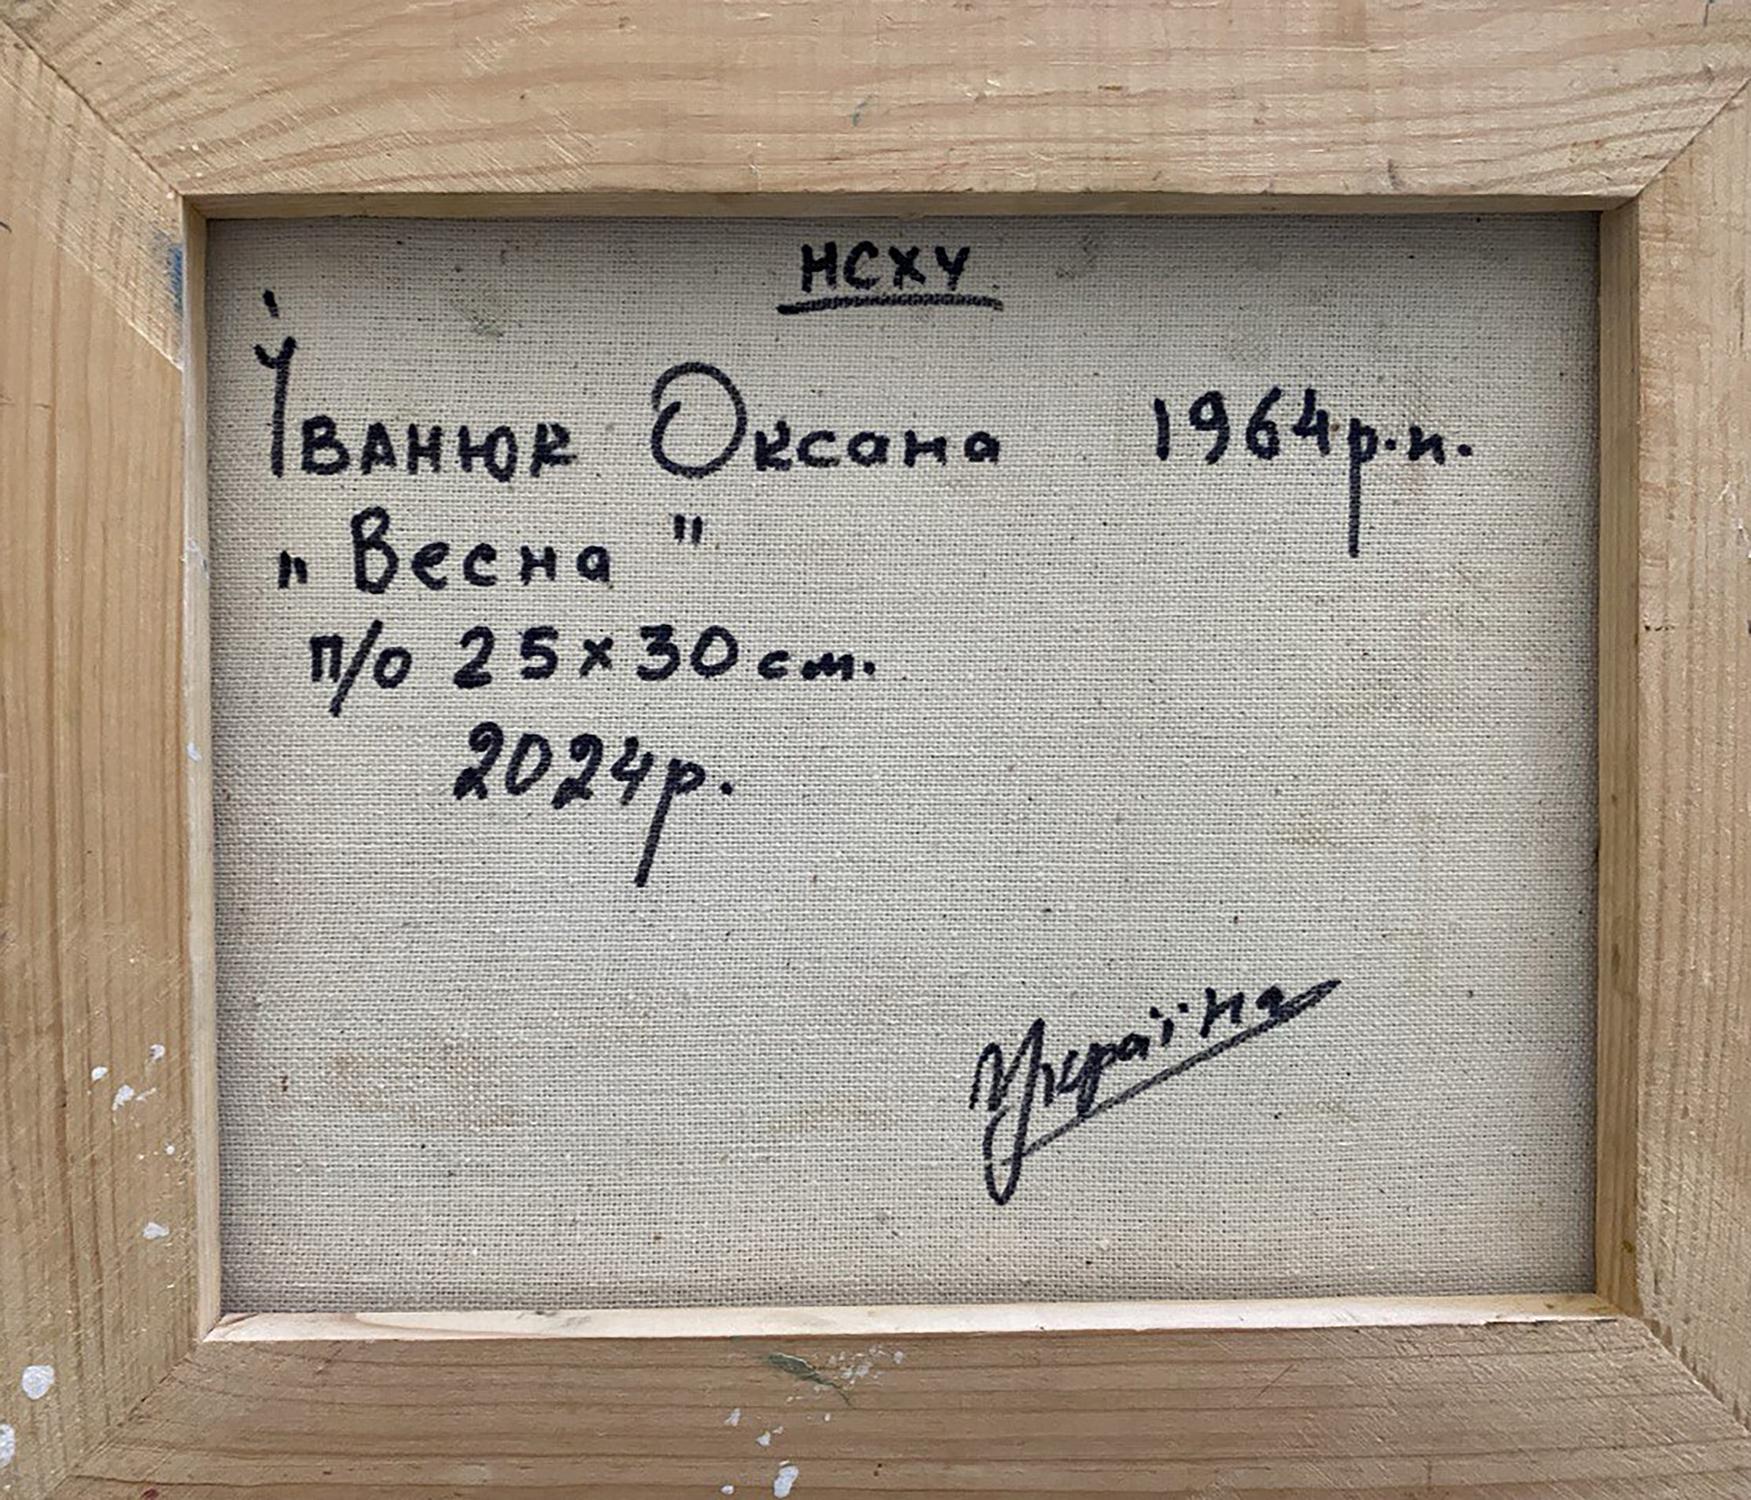 НСХУ
Іванюк Оксана 1964р.н.
„Весна"
п/о 25х30см.
2024р.
Україна